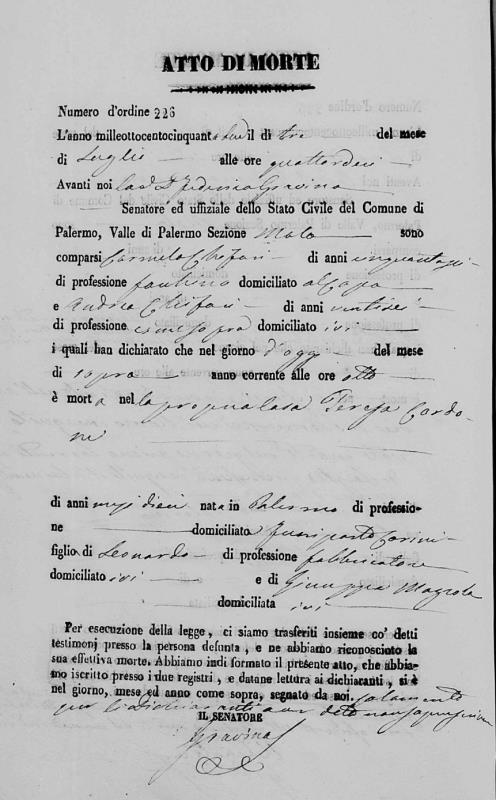 ATTO DI MORTE
Numero d'ordine 226
L'anno milleottocentocinquant il dì tre del mese
di Luglio alle ore quattordici
Avanti noi Gravina
Senatore ed uffiziale dello Stato Civile del Comune di
Palermo, Valle di Palermo Sezione Molo sono
comparsi Carmelo di anni
di professione domiciliato al Capo
e Andrea di anni ventisei
di professione come sopra domiciliato ivi
i quali han dichiarato che nel giorno d'oggi del mese
di sopra anno corrente alle ore otto
è morta nella propria casa Teresa Cardo-
ne
di anni mesi dieci nata in Palermo di professio-
ne domiciliato fuori porta Carini
figlio di Leonardo di professione fabbricatore
domiciliato ivi e di Giuseppa
domiciliata ivi
Per esecuzione della legge, ci siamo trasferiti insieme co' detti
testimonj presso la persona defunta, e ne abbiamo riconosciuto la
sua effettiva morte. Abbiamo indi formato il presente atto, che abbia-
mo iscritto presso i due registri, e datane lettura ai dichiaranti, si è
nel giorno, mese ed anno come sopra, segnato da noi. solamente
per i dichiaranti aver detto non sapere
IL SENATORE
Gravina